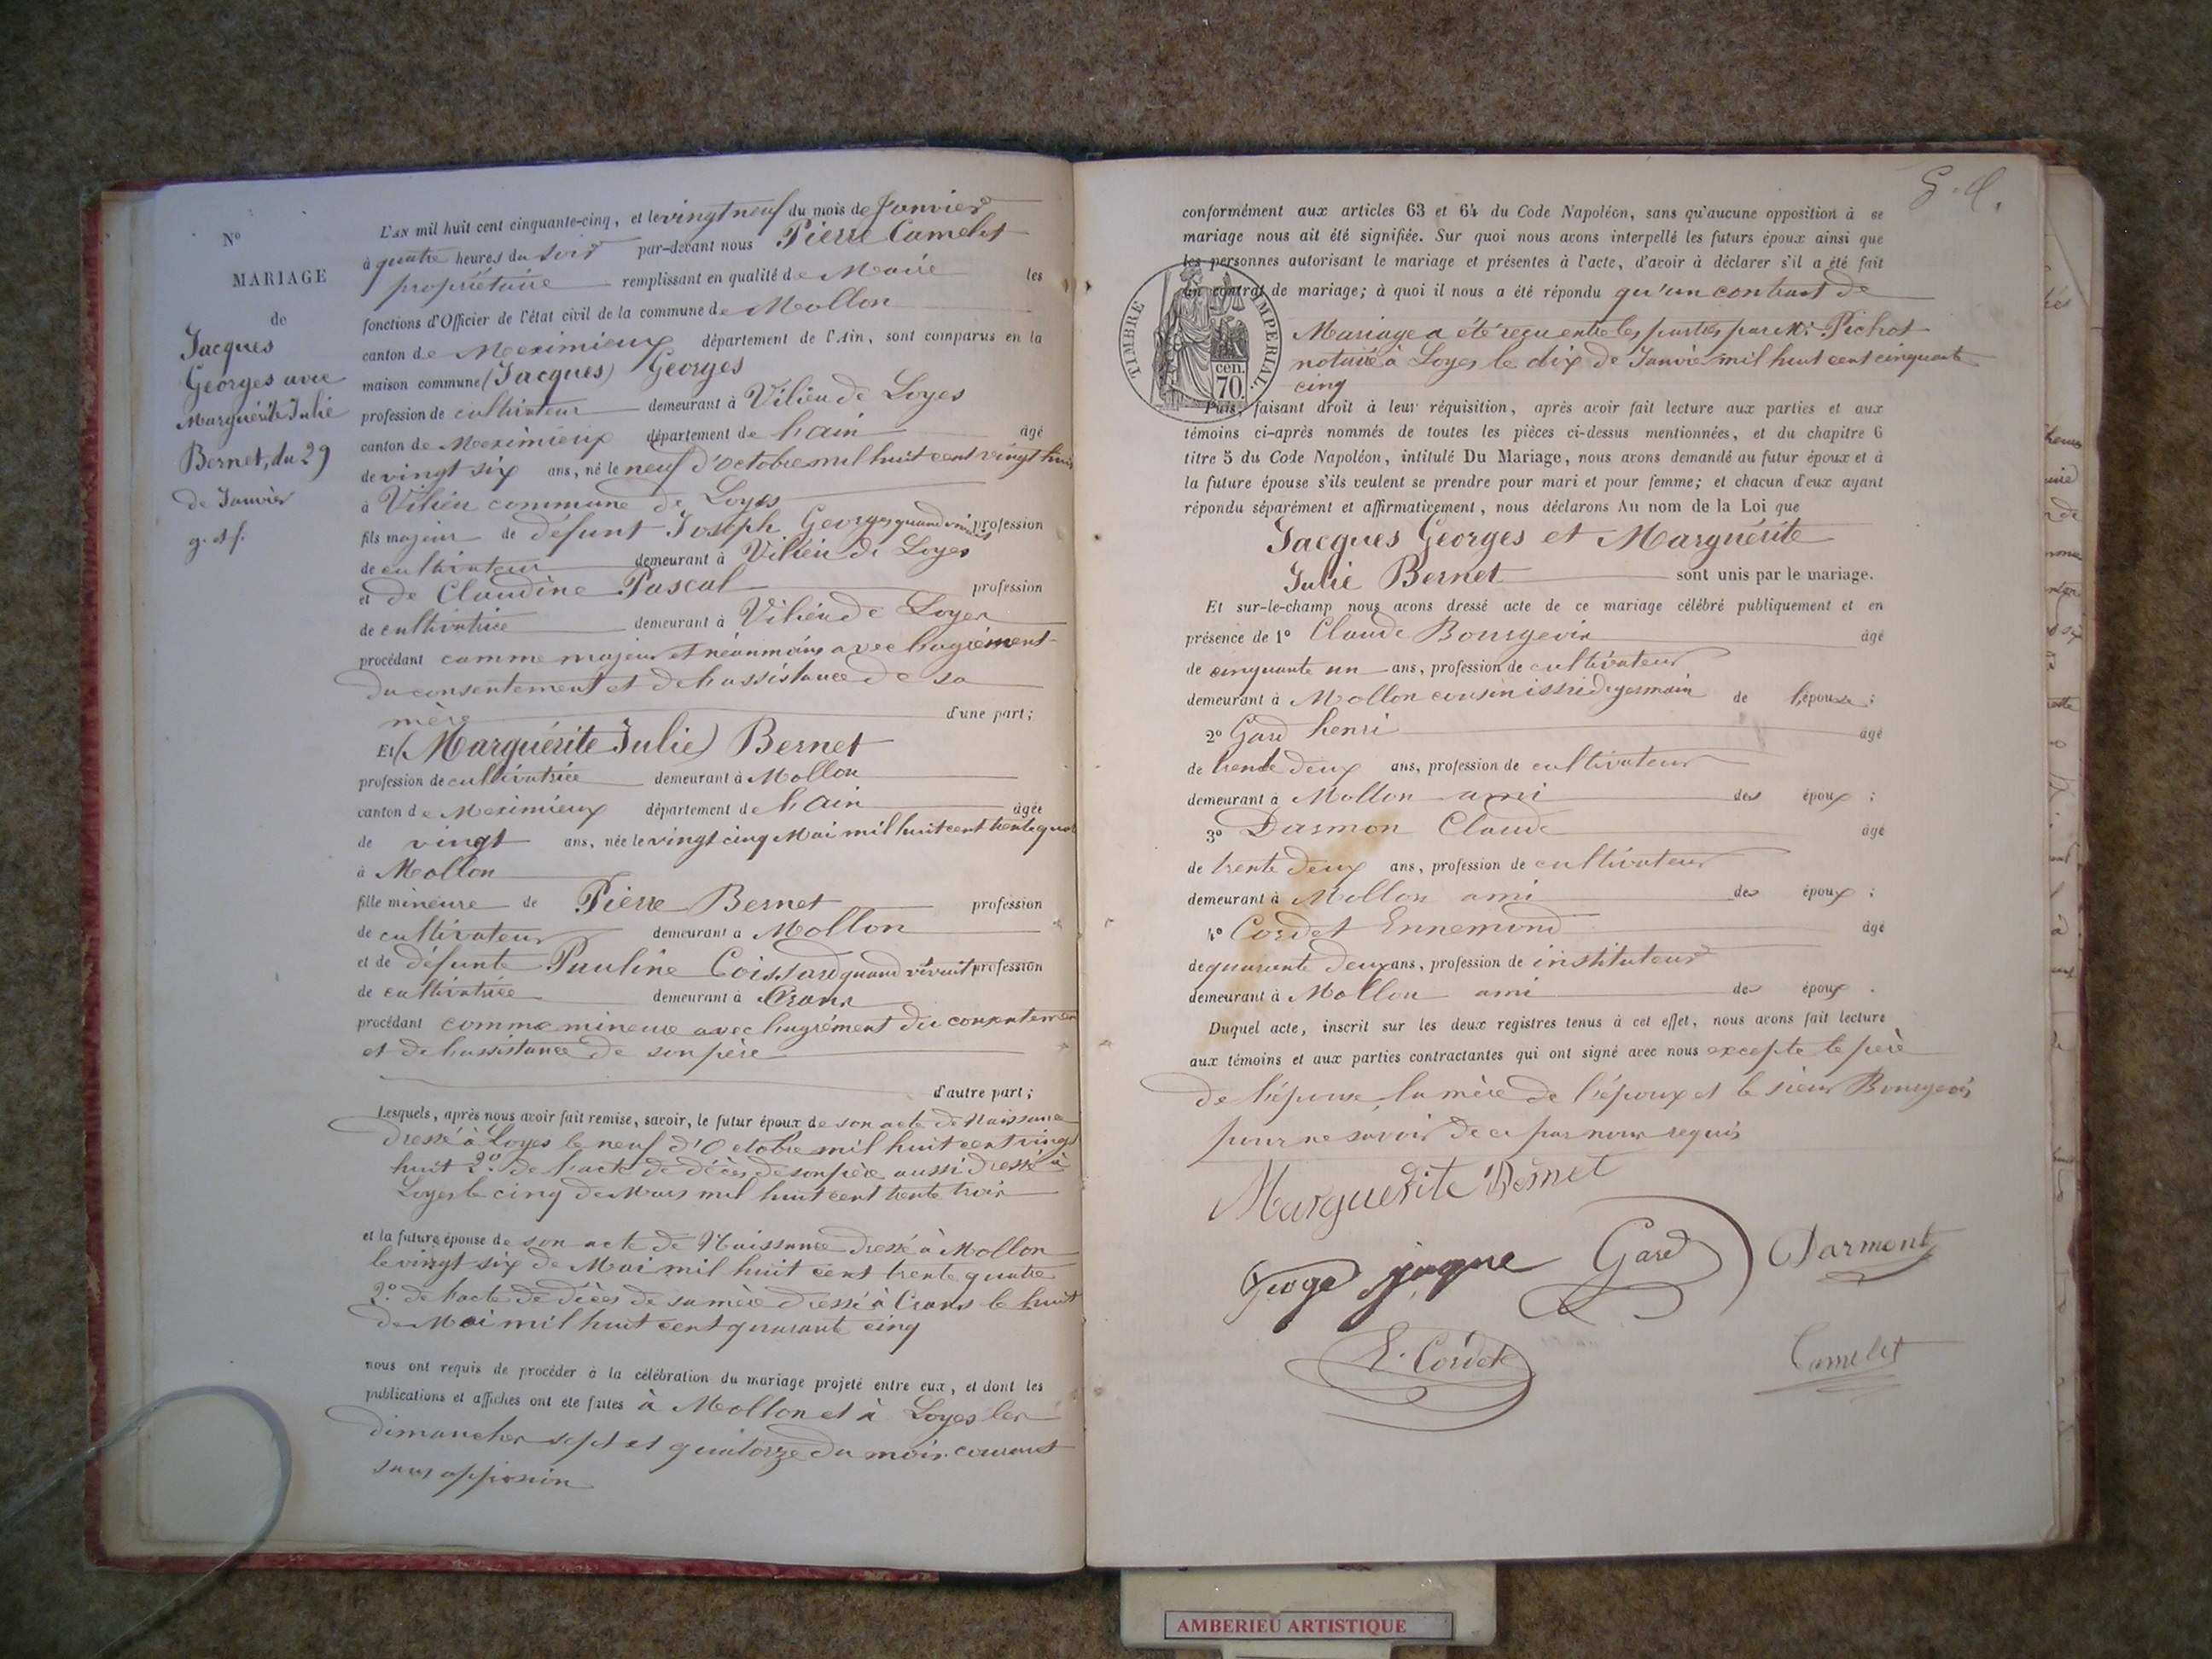 Nº
MARIAGE
de
Jacques
Georges avec
Marguérite Julie
Bernet, du 29
de Janvier
g. et f.
L'AN mil huit cent cinquante-cinq, et le vingt neuf du mois de Janvier
à quatre heures du soir par-devant nous Pierre Camelet
propriétaire remplissant en qualité de Maire les
fonctions d'Officier de l'état civil de la commune de Mollon
canton de Meximieux département de l'Ain, sont comparus en la
maison commune (Jacques) Georges
profession de cultivateur demeurant à Vilieu de Loyes
canton de Meximieux département de l'ain âgé
de vingt six ans, né le neuf d'Octobre mil huit cent vingt
à Vilieu commune de Loyes
fils majeur de défunt Joseph Georges quand vivait profession
de cultivateur demeurant à Vilieu de Loyes
et de Claudine Pascal profession
de cultivatrice demeurant à Vilieu de Loyes
procédant comme majeur et néanmoins avec l'agrément
du consentement et de l'assistance de sa
mère d'une part;
Et (Marguérite Julie) Bernet
profession de cultivatrice demeurant à Mollon
canton de Meximieux département de l'ain âgée
de vingt ans, née le vingt cinq Mai mil huit cent trente quat
à Mollon
fille mineure de Pierre Bernet profession
de cultivateur demeurant à Mollon
et de défunte Pauline Coissard quand vivait profession
de cultivatrice demeurant à Crans
procédant comme mineure avec l'agrément du consentemen
et de l'assistance de son père
d'autre part;
Lesquels, après nous avoir fait remise, savoir, le futur époux de son acte de Naissance
dressé à Loyes le neuf d'Octobre mil huit cent vingt
huit 2º de l'acte de décès de son père aussi dressé à
Loyes le cinq de Mars mil huit cent trente trois
et la future épouse de son acte de Naissance dressé à Mollon
le vingt six de Mai mil huit cent trente quatre
2º de l'acte de décès de sa mère dressé à Crans le huit
de Mai mil huit cent quarante cinq
nous ont requis de procéder à la célébration du mariage projeté entre eux, et dont les
publications et affiches ont été faites à Mollon et à Loyes les
dimanches sept et quatorze du mois courant
sans opposion
conformément aux articles 63 et 64 du Code Napoléon, sans qu'aucune opposition à ce
mariage nous ait été signifiée. Sur quoi nous avons interpellé les futurs époux ainsi que
les personnes autorisant le mariage et présentes à l'acte, d'avoir à déclarer s'il a été fait
un contrat de mariage; à quoi il nous a été répondu qu'un contrat de
Mariage a été reçu entre les parties par Me Pichot
notaire à Loyes le dix de Janvier mil huit cent cinquante
cinq
TIMBRE IMPERIAL.
cen.
70.
Puis, faisant droit à leur réquisition, après avoir fait lecture aux parties et aux
témoins ci-après nommés de toutes les pièces ci-dessus mentionnées, et du chapitre 6
titre 5 du Code Napoléon, intitulé Du Mariage, nous avons demandé au futur époux et à
la future épouse s'ils veulent se prendre pour mari et pour femme; et chacun d'eux ayant
répondu séparément et affirmativement, nous déclarons Au nom de la Loi que
Jacques Georges et Marguérite
Julie Bernet sont unis par le mariage.
Et sur-le-champ nous avons dressé acte de ce mariage célébré publiquement et en
présence de 1º Claude Bourgeois âgé
de cinquante un ans, profession de cultivateur
demeurant à Mollon cousin issu de germain de l'épouse;
2º Gard henri âgé
de trente deux ans, profession de cultivateur
demeurant à Mollon ami des époux;
3º Darmon Claude âgé
de trente deux ans, profession de cultivateur
demeurant à Mollon ami des époux;
4º Cordet Ennemond âgé
de quarante deux ans, profession de instituteur
demeurant à Mollon ami des époux.
Duquel acte, inscrit sur les deux registres tenus à cet effet, nous avons fait lecture
aux témoins et aux parties contractantes qui ont signé avec nous excepte le père
de l'épouse, la mère de l'époux et le sieur Bourgeois
pour ne savoir de ce par nous requis
Marguerite Bernet
George jaque Gard Darmont
E. Cordet Camelet
AMBERIEU ARTISTIQUE